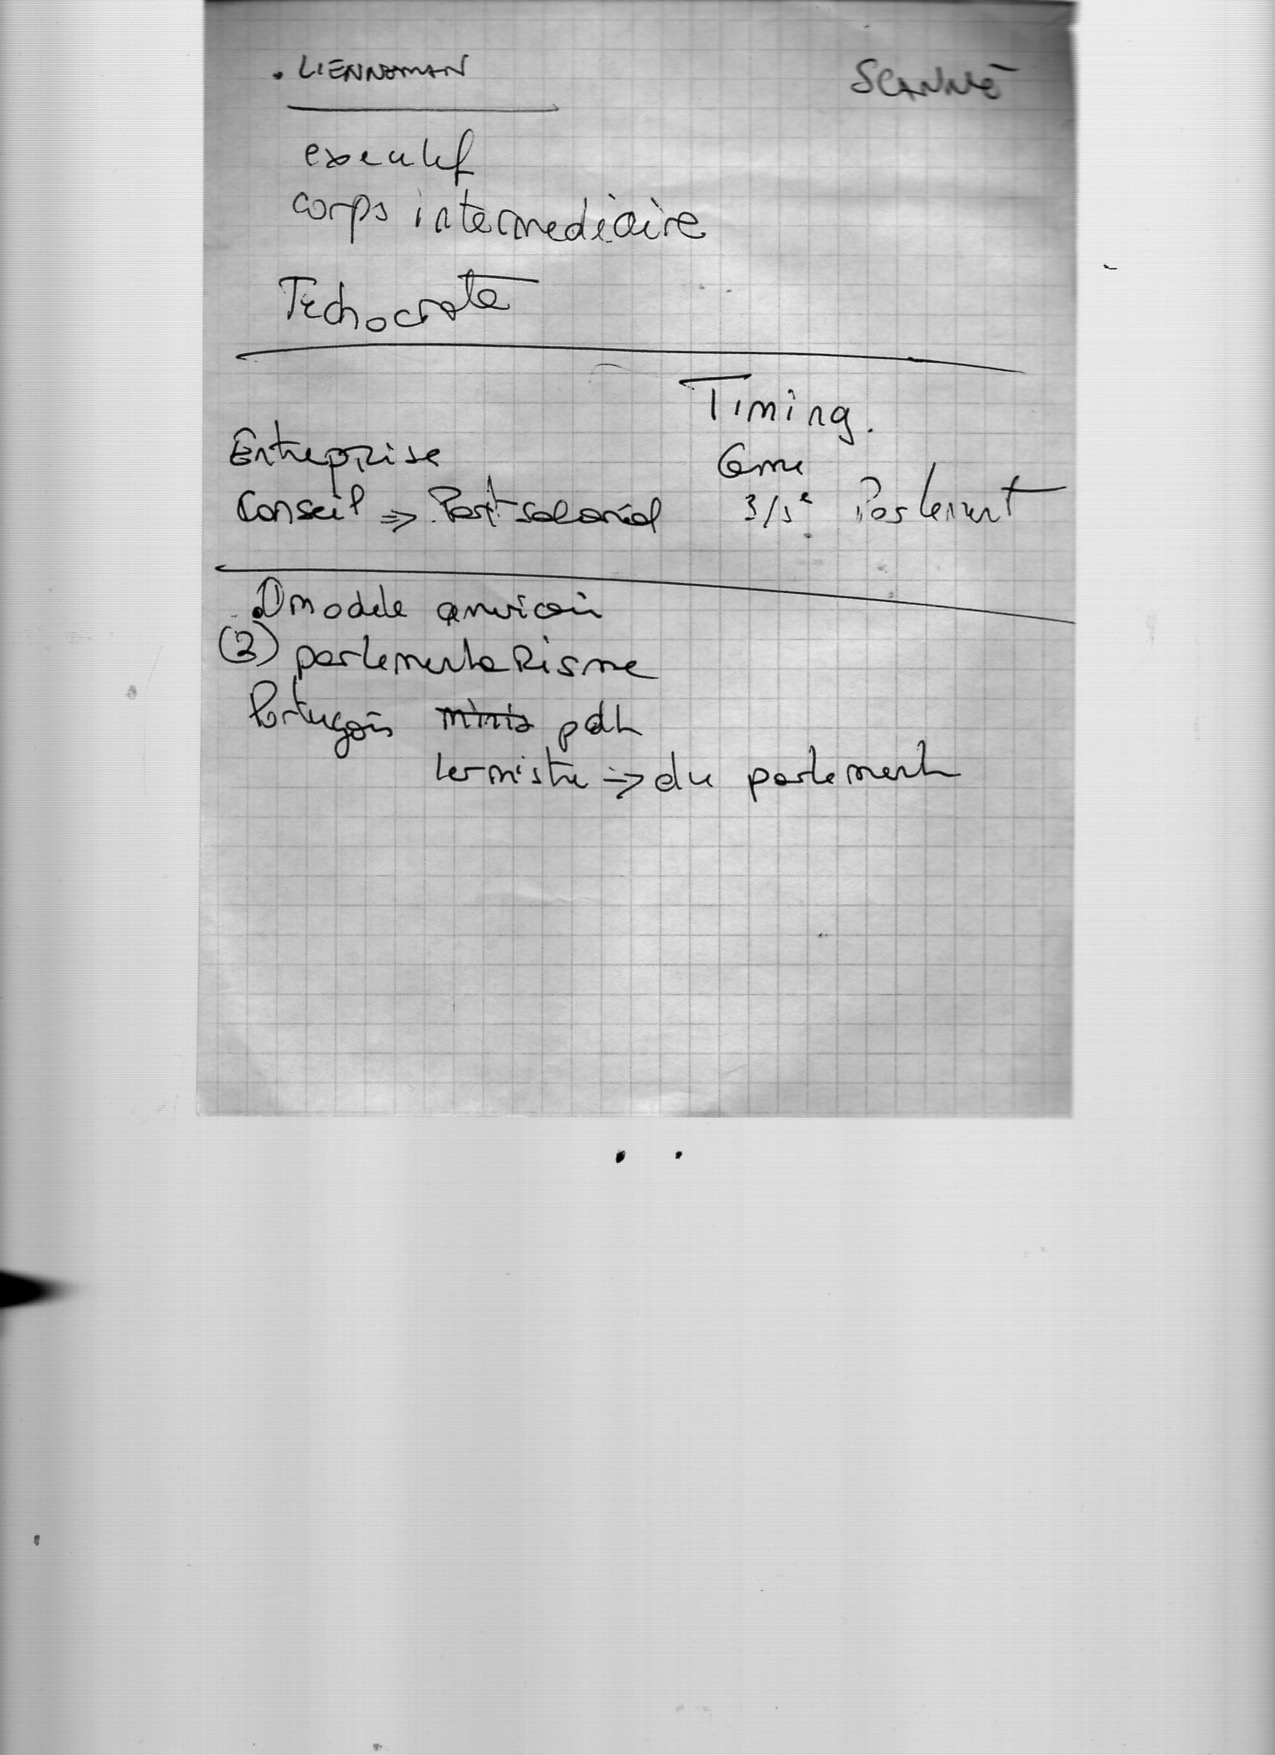 . LIENNEMAN
SCANNÉ
executif
corps intermediaire
Techocrate
Timing.
Entreprise
6eme
Conseil => Part salarial
3/5e Parlement
1) modele americain
(2) parlementaRisme
Portugais minis pdt
1er ministre => du parlement